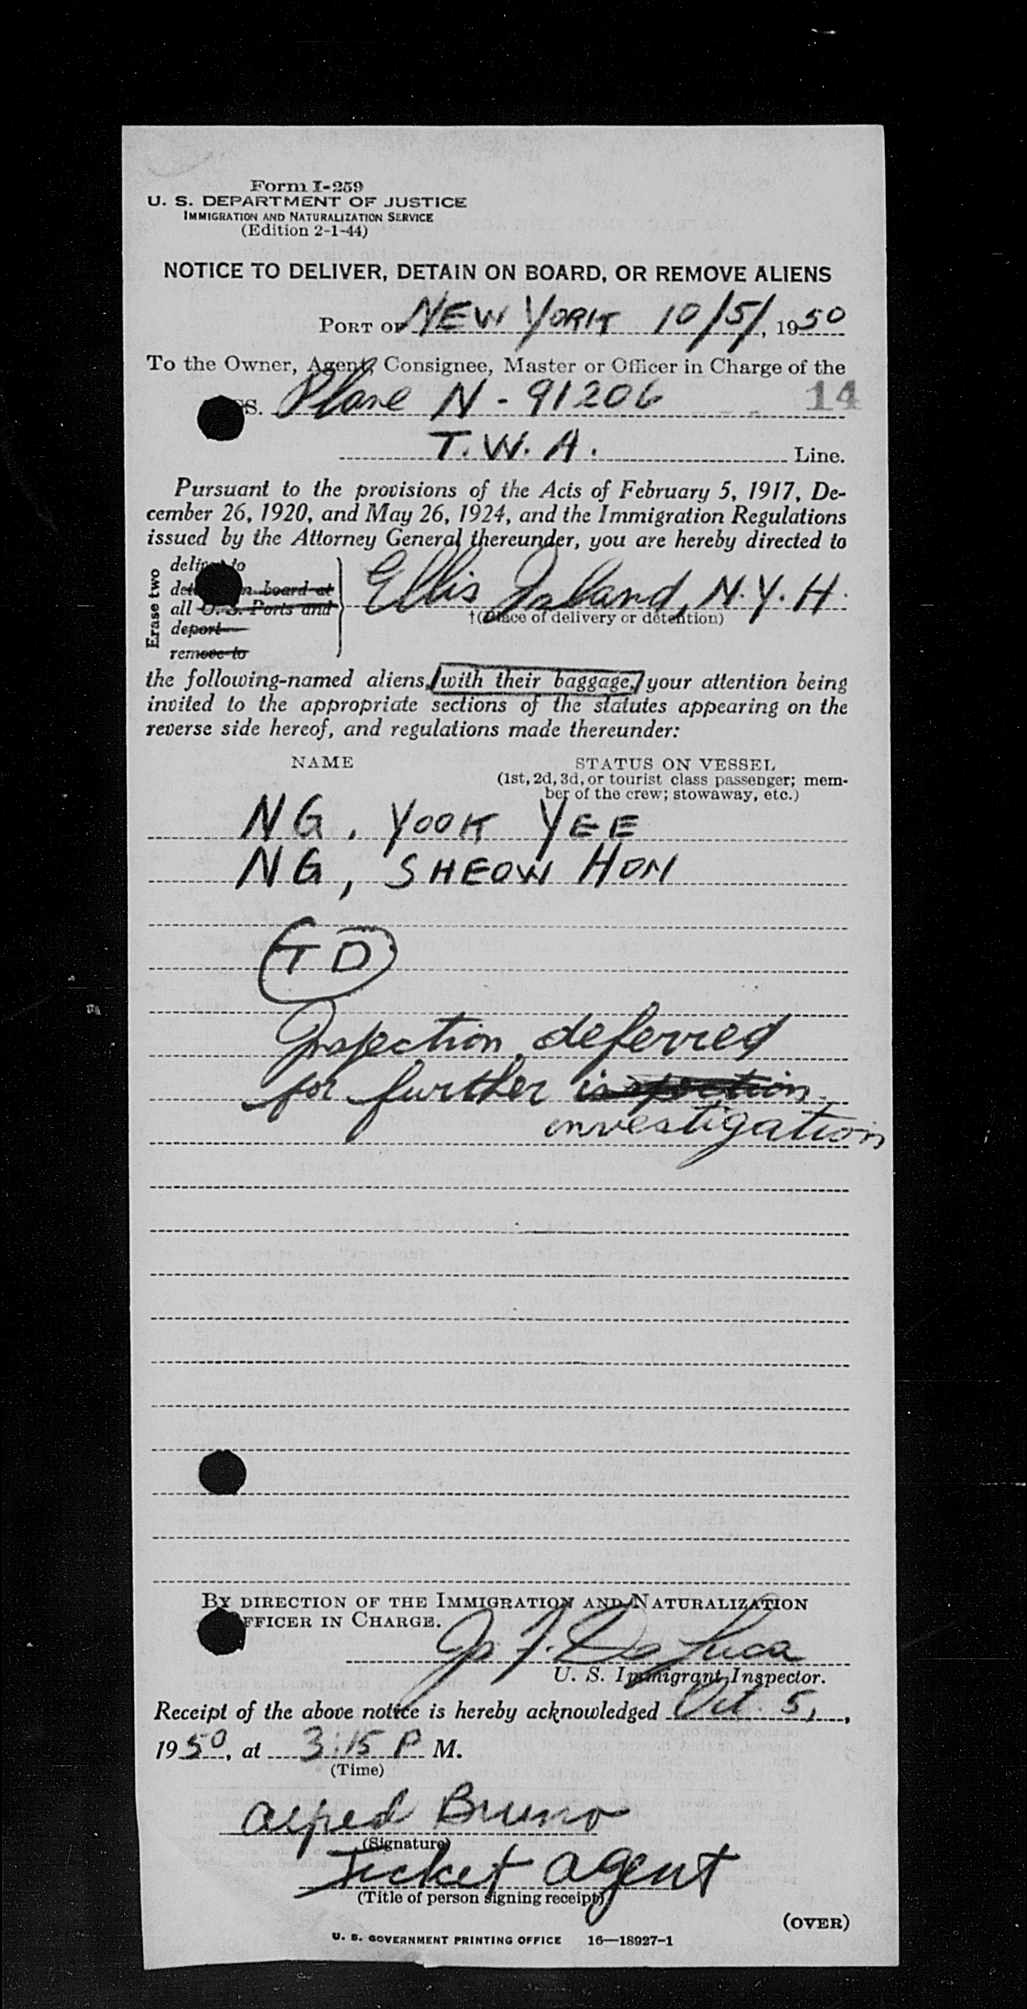 Form I-259
U. S. DEPARTMENT OF JUSTICE
IMMIGRATION AND NATURALIZATION SERVICE
(Edition 2-1-44)
NOTICE TO DELIVER, DETAIN ON BOARD, OR REMOVE ALIENS
PORT OF NEW YORK 10/5/, 1950
To the Owner, Agent, Consignee, Master or Officer in Charge of the
SS. Plane N-91206 14
T.W.A. Line.
Pursuant to the provisions of the Acts of February 5, 1917, De-
cember 26, 1920, and May 26, 1924, and the Immigration Regulations
issued by the Attorney General thereunder, you are hereby directed to
Erase two
deliver to
detain on board at
all U. S. Ports and
deport
remove to
Ellis Island, N.Y.H.
†(Place of delivery or detention)
the following-named aliens, with their baggage, your attention being
invited to the appropriate sections of the statutes appearing on the
reverse side hereof, and regulations made thereunder:
NAME STATUS ON VESSEL
(1st, 2d, 3d, or tourist class passenger; mem-
ber of the crew; stowaway, etc.)
NG, YOOK YEE
NG, SHEOW HON
TD
Inspection deferred
for further inspection
investigation
BY DIRECTION OF THE IMMIGRATION AND NATURALIZATION
OFFICER IN CHARGE.
F. De Luca
U. S. Immigrant Inspector.
Receipt of the above notice is hereby acknowledged Oct. 5,,
1950, at 3:15 P M.
(Time)
Alfred Bruno
(Signature)
Ticket Agent
(Title of person signing receipt)
(OVER)
U. S. GOVERNMENT PRINTING OFFICE 16—18927-1